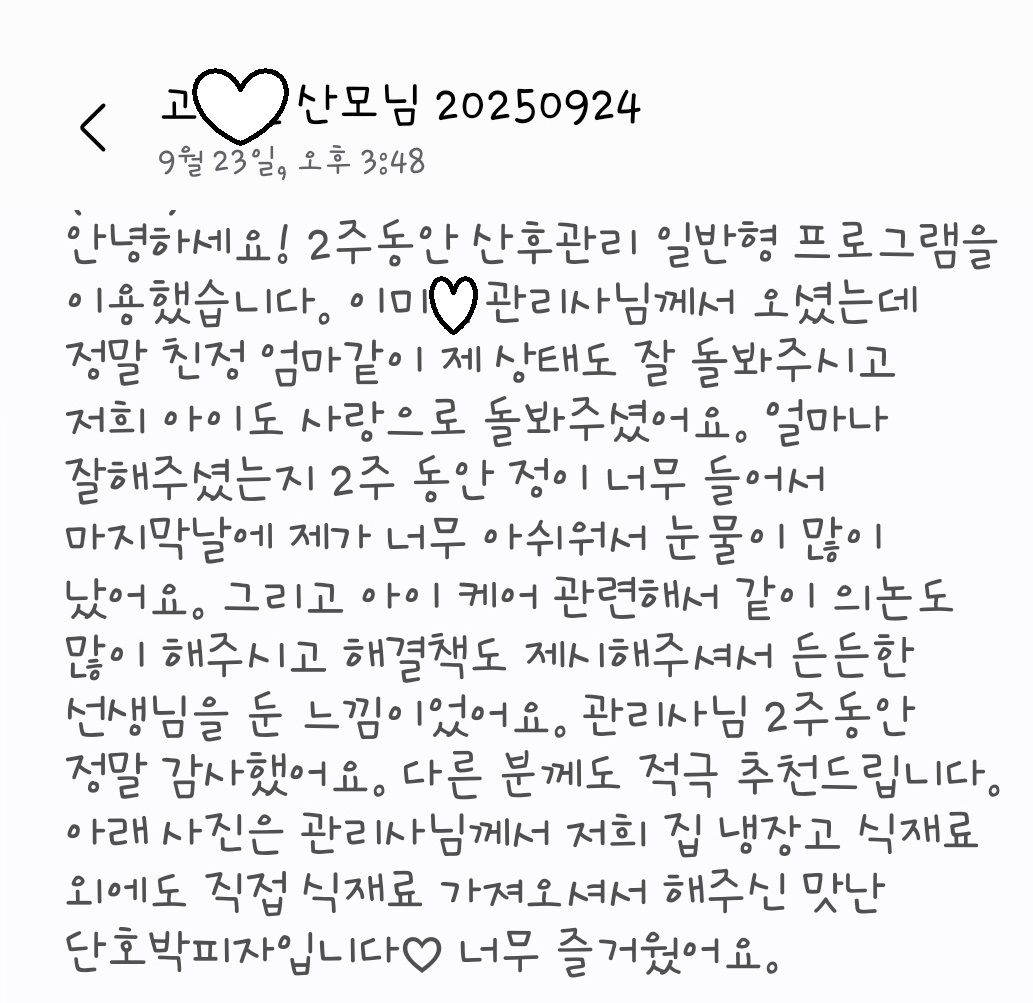 고 산모님 20250924
9월 23일, 오후 3:48
안녕하세요! 2주동안 산후관리 일반형 프로그램을
이용했습니다. 이미♡관리사님께서 오셨는데
정말 친정 엄마같이 제 상태도 잘 돌봐주시고
저희 아이도 사랑으로 돌봐주셨어요. 얼마나
잘해주셨는지 2주 동안 정이 너무 들어서
마지막날에 제가 너무 아쉬워서 눈물이 많이
났어요. 그리고 아이 케어 관련해서 같이 의논도
많이 해주시고 해결책도 제시해주셔서 든든한
선생님을 둔 느낌이었어요. 관리사님 2주동안
정말 감사했어요. 다른 분께도 적극 추천드립니다.
아래 사진은 관리사님께서 저희 집 냉장고 식재료
외에도 직접 식재료 가져오셔서 해주신 맛난
단호박피자입니다♡ 너무 즐거웠어요.